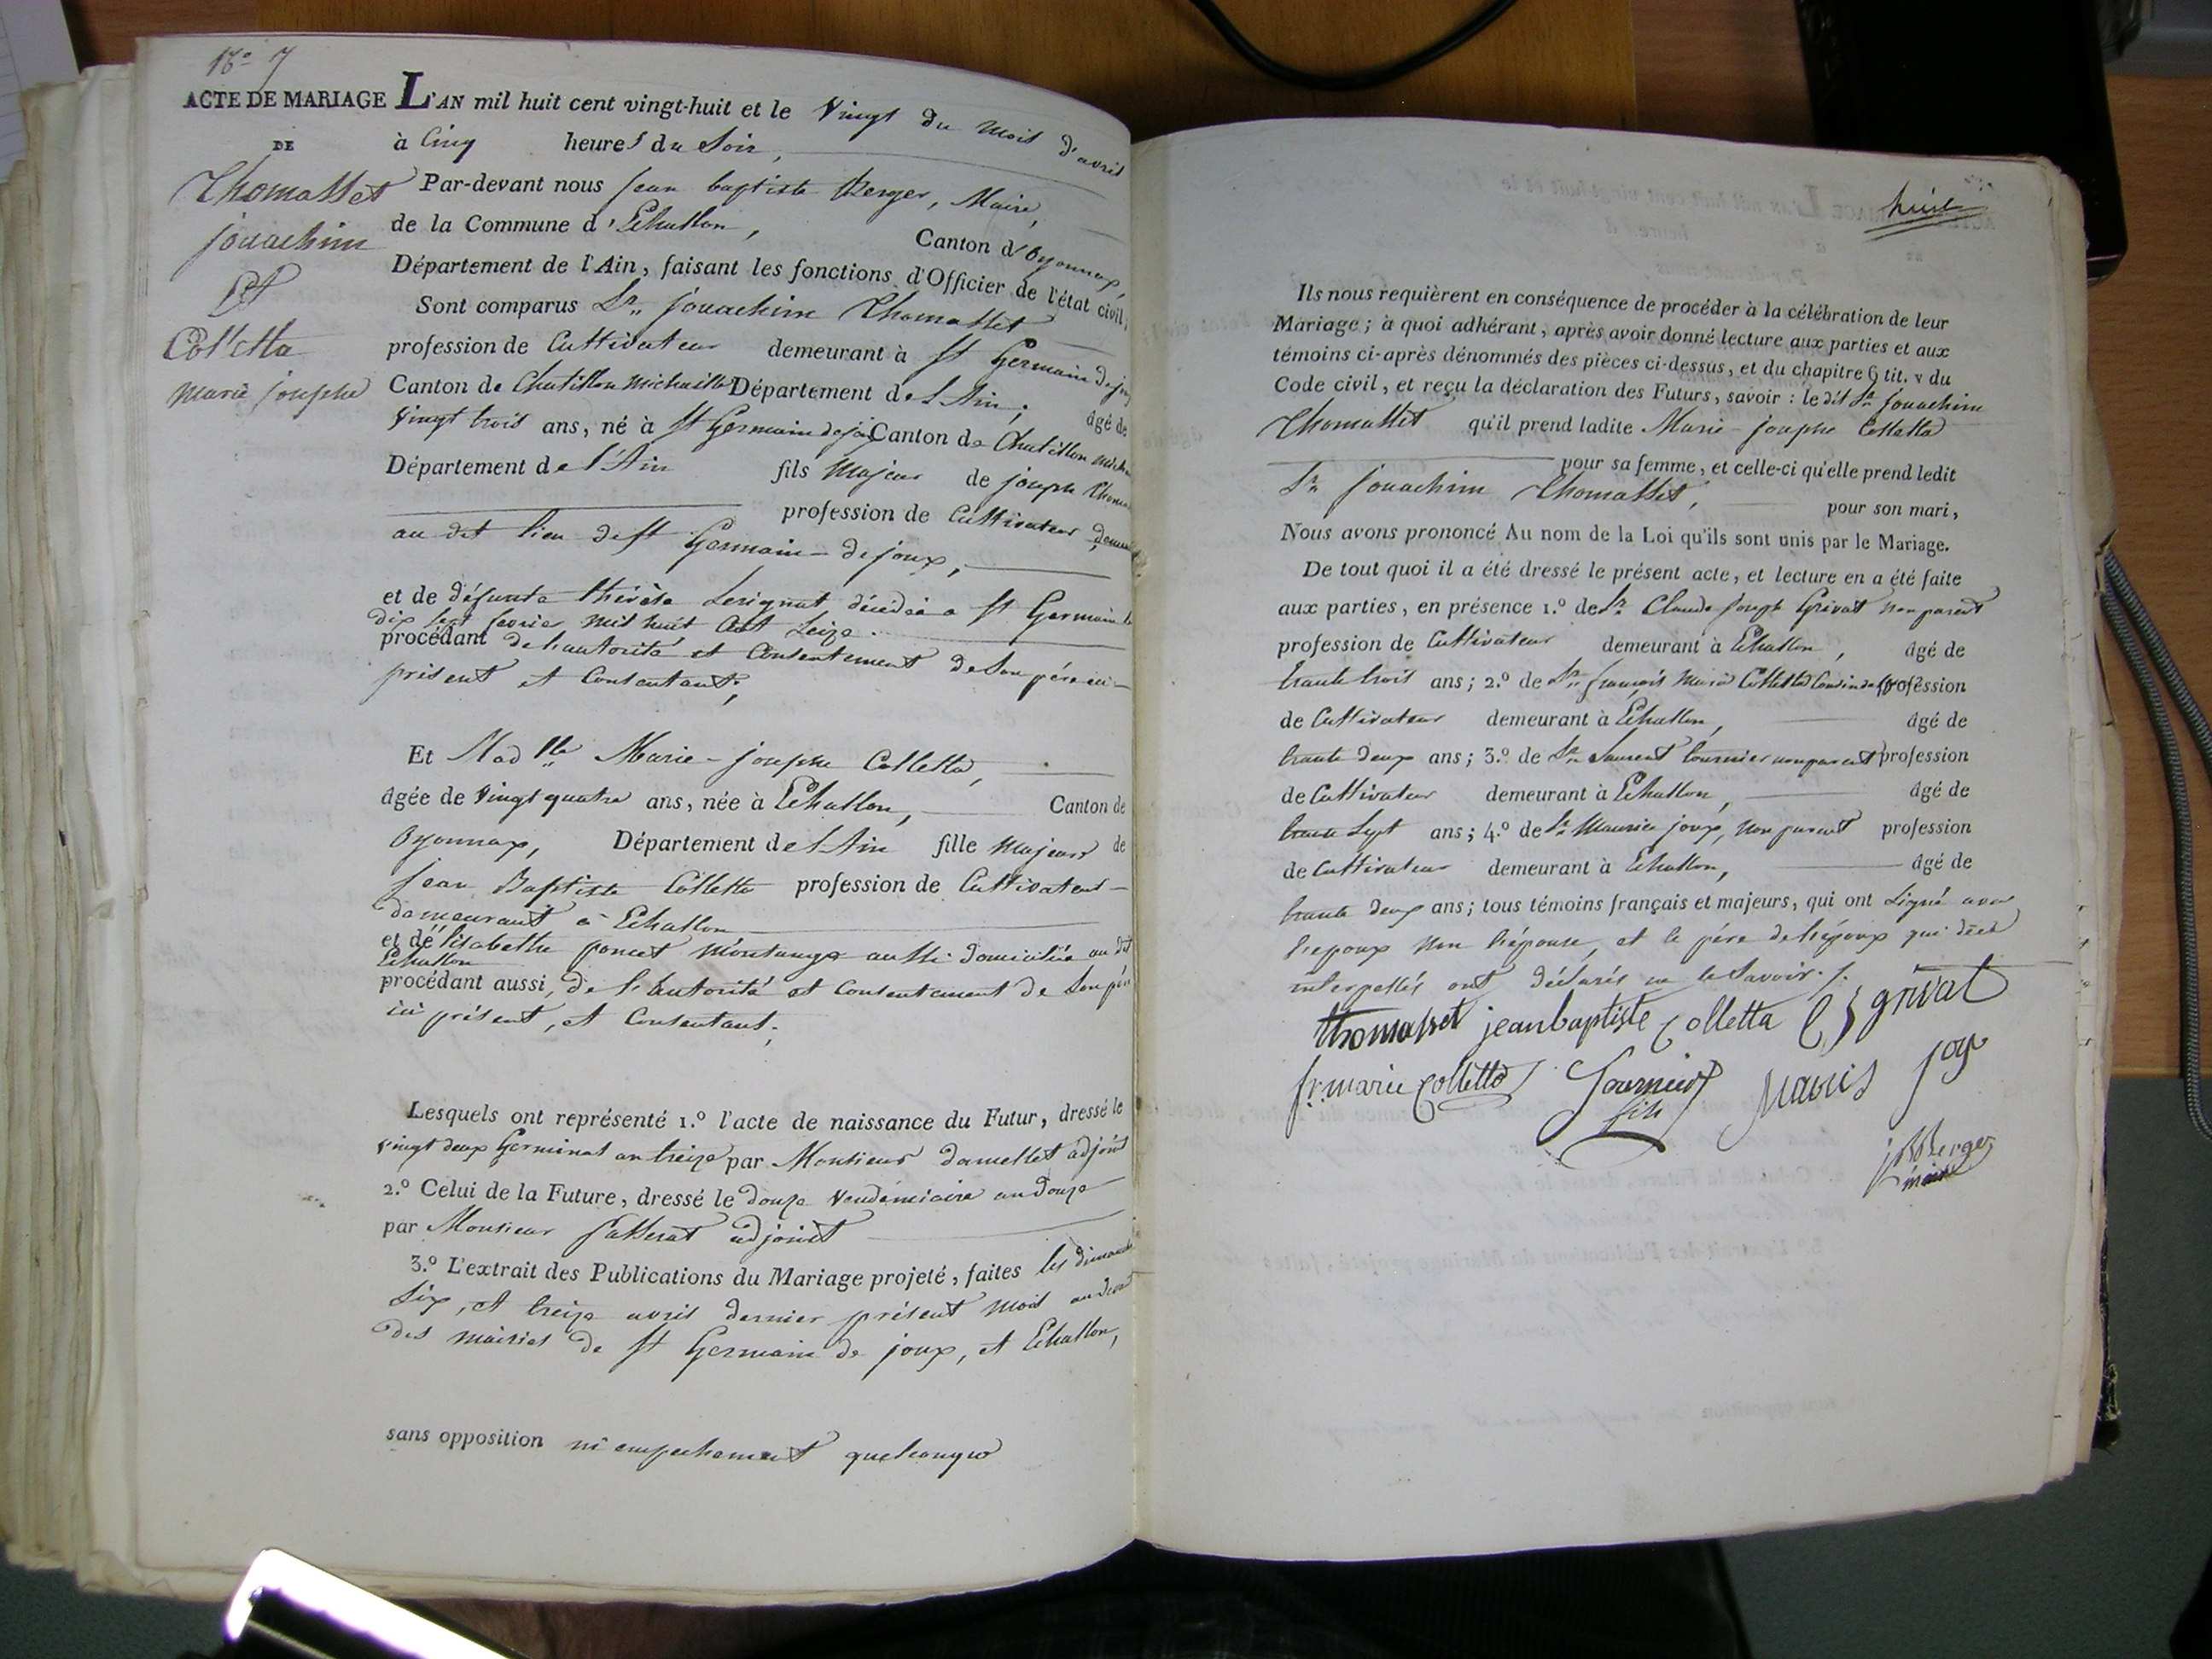 N.o 7
ACTE DE MARIAGE
DE
Thomasset
jouachim
Et
Colletta
marie josephe
L'AN mil huit cent vingt-huit et le vingt du mois d'avril
à Cinq heures du Soir,
Par-devant nous jean baptiste Berger, Maire,
de la Commune d'Echallon, Canton d'Oyonnax,
Département de l'Ain, faisant les fonctions d'Officier de l'état civil,
Sont comparus Sr. jouachim Thomasset
profession de Cultivateur demeurant à St Germain dejoux
Canton de Chatillon michaille Département de l'Ain, âgé de
vingt trois ans, né à St Germain dejoux Canton de Chatillon mich
Département de l'Ain fils majeur de joseph Thoma
profession de Cultivateur demeu
au dit lieu de St Germain dejoux,
et de défunte thérèse décédée a St Germain le
dix sept mil huit Cent Seize.
procédant de l'autorité et Consentement de Son père ici
présent et Consentant,
Et Madlle Marie-josephe Colletta,
âgée de vingt quatre ans, née à Echallon, Canton de
Oyonnax, Département de l'Ain fille majeure de
jean Baptiste Colletta profession de Cultivateur
demeurant à Echallon
et de élisabethe poncet montange aussi domiciliée au dit
Echallon
procédant aussi, de l'autorité et Consentement de Son père
ici présent, et Consentant,
Lesquels ont représenté 1.º l'acte de naissance du Futur, dressé le
vingt deux Germinal an treize par Monsieur adjoint
2.º Celui de la Future, dressé le douze Vendémiaire an douze
par Monsieur adjoint
3.º L'extrait des Publications du Mariage projeté, faites les dimanche
Six, et treize avril dernier présent mois au devant
des mairies de St Germain de joux, et Echallon,
sans opposition ni empechement quelconque
huit
Ils nous requièrent en conséquence de procéder à la célébration de leur
Mariage; à quoi adhérant, après avoir donné lecture aux parties et aux
témoins ci-après dénommés des pièces ci-dessus, et du chapitre 6 tit. v du
Code civil, et reçu la déclaration des Futurs, savoir: le dit Sr. jouachim
Thomasset qu'il prend ladite Marie-josephe Colletta
pour sa femme, et celle-ci qu'elle prend ledit
Sr. jouachim Thomasset, pour son mari,
Nous avons prononcé Au nom de la Loi qu'ils sont unis par le Mariage.
De tout quoi il a été dressé le présent acte, et lecture en a été faite
aux parties, en présence 1.º de Sr. Claude joseph Grivat non parent
profession de Cultivateur demeurant à Echallon, âgé de
trente trois ans; 2.º de Sr. françois marie Colletta profession
de Cultivateur demeurant à Echallon, âgé de
trente deux ans; 3.º de Sr. Laurent tournier non parent profession
de Cultivateur demeurant à Echallon, âgé de
trente Sept ans; 4.º de Sr. Maurice joux, non parent profession
de Cultivateur demeurant à Echallon, âgé de
trente deux ans; tous témoins français et majeurs, qui ont Signé avec
l'époux non l'épouse, et le père de l'époux qui
interpellés ont déclarés ne le Savoir./.
thomasset jean baptiste Colletta C J grivat
fr. marie Colletta Tournier
fils joux
jB Berger
maire